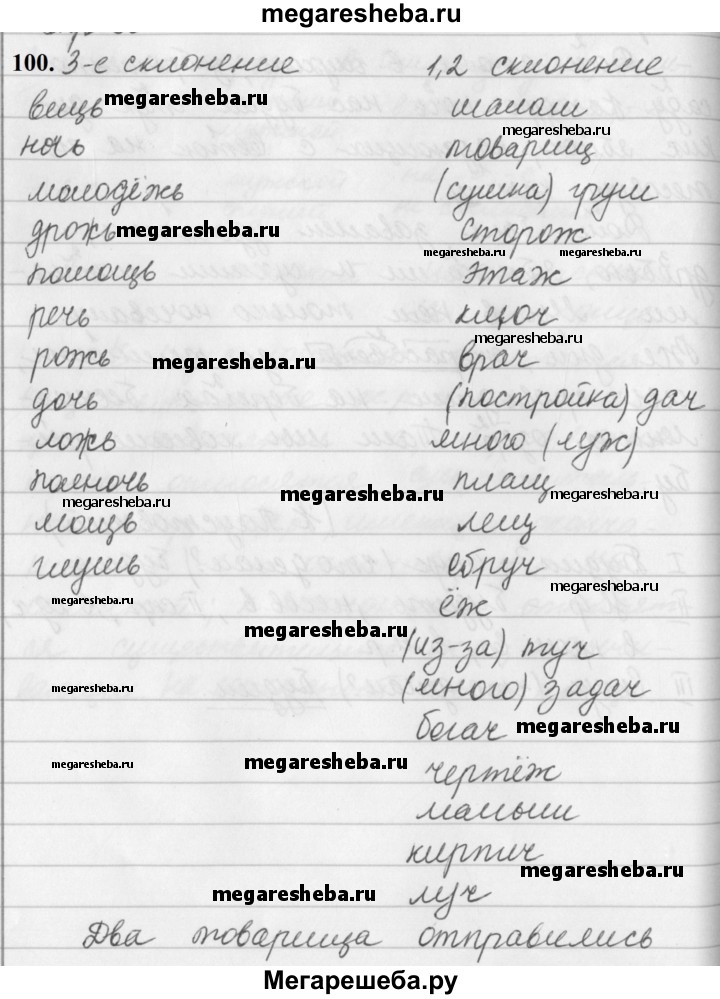 megaresheba.ru
100. 3-е склонение 1,2 склонение
вещь шалаш
ночь товарищ
молодёжь (сушка) груш
дрожь сторож
помощь этаж
речь ключ
рожь врач
дочь (постройка) дач
ложь много (луж)
полночь плащ
мощь лещ
глушь обруч
ёж
(из-за) туч
(много) задач
богач
чертёж
малыш
кирпич
луч
Два товарища отправились
megaresheba.ru
megaresheba.ru
megaresheba.ru
megaresheba.ru
megaresheba.ru
megaresheba.ru
megaresheba.ru
megaresheba.ru
megaresheba.ru
megaresheba.ru
megaresheba.ru
megaresheba.ru
megaresheba.ru
megaresheba.ru
megaresheba.ru
megaresheba.ru
megaresheba.ru
megaresheba.ru
megaresheba.ru
Мегарешеба.ру